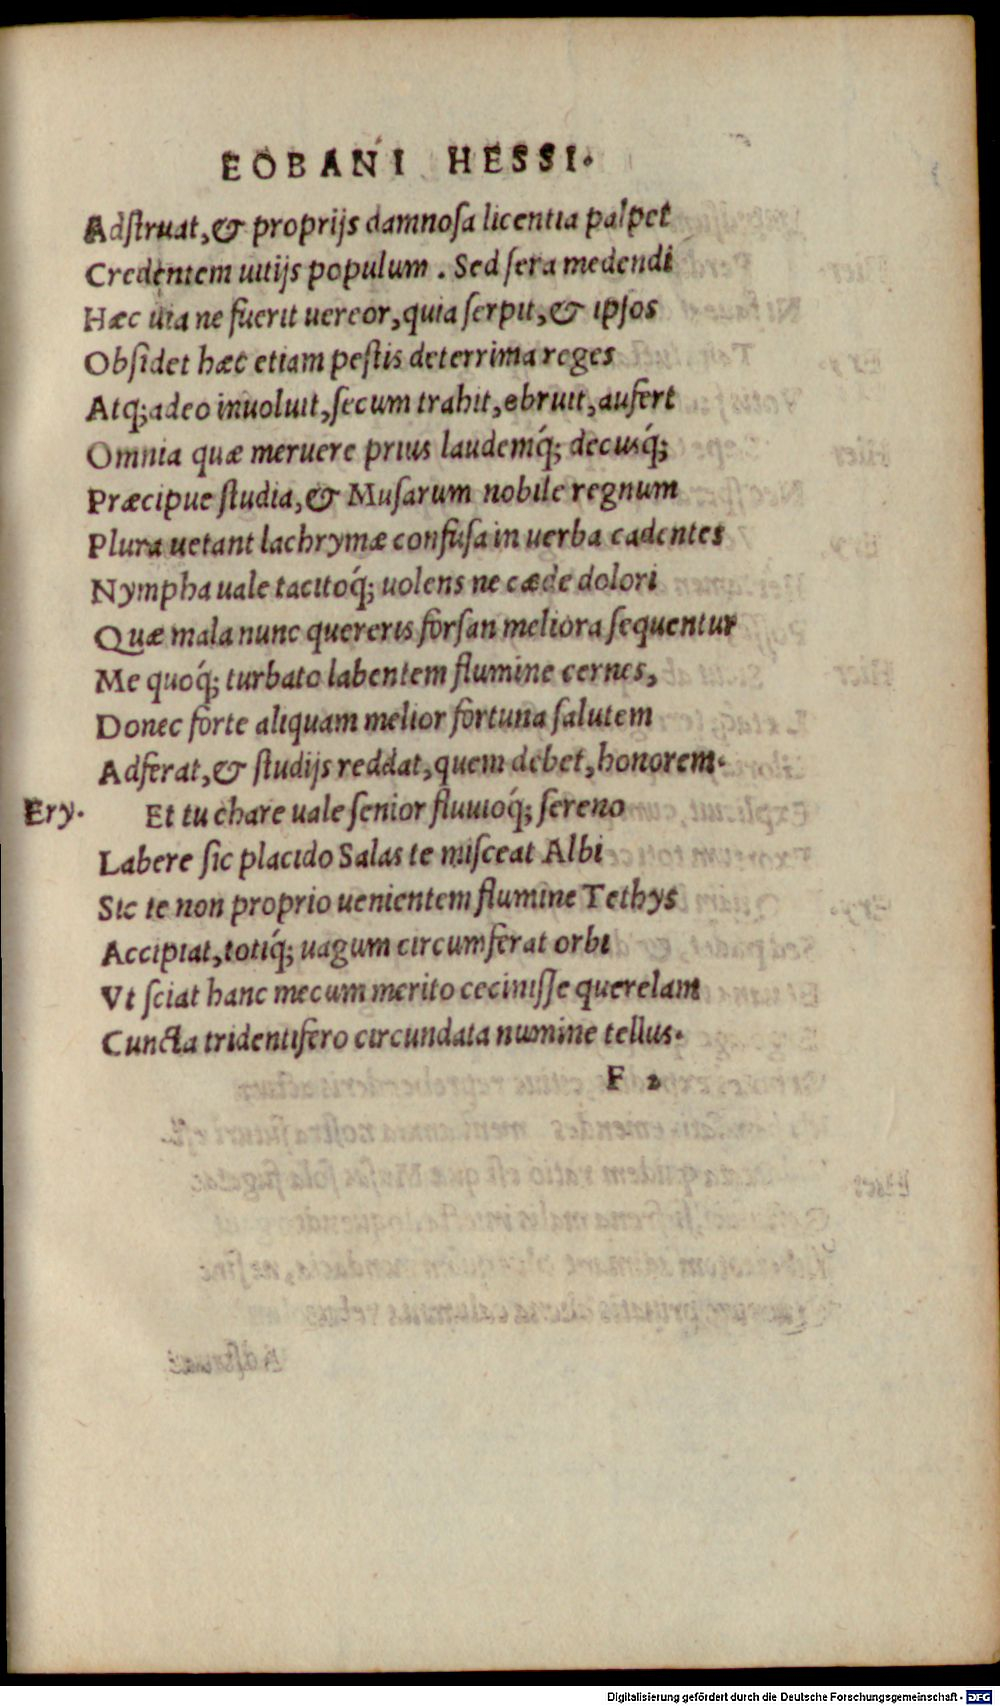 EOBANI HESSI.
Adſtruat, & proprijs damnoſa licentia palpet
Credentem uitijs populum . Sed ſera medendi
Hæc uia ne fuerit uereor, quia ſerpit, & ipſos
Obſidet hæc etiam peſtis deterrima reges
Atq; adeo inuoluit, ſecum trahit, obruit, aufert
Omnia quæ meruere prius laudemq́; decusq́;
Præcipue ſtudia, & Muſarum nobile regnum
Plura uetant lachrymæ confuſa in uerba cadentes
Nympha uale tacitoq́; uolens ne cæde dolori
Quæ mala nunc quereris forſan meliora ſequentur
Me quoq́; turbato labentem flumine cernes,
Donec forte aliquam melior fortuna ſalutem
Adferat, & ſtudijs reddat, quem debet, honorem.
Ery. Et tu chare uale ſenior fluuioq́; ſereno
Labere ſic placido Salas te miſceat Albi
Sic te non proprio uenientem flumine Tethys
Accipiat, totiq́; uagum circumferat orbi
Vt ſciat hanc mecum merito ceciniſſe querelam
Cuncta tridentifero circundata numine tellus.
F 2
Digitalisierung gefördert durch die Deutsche Forschungsgemeinschaft - DFG